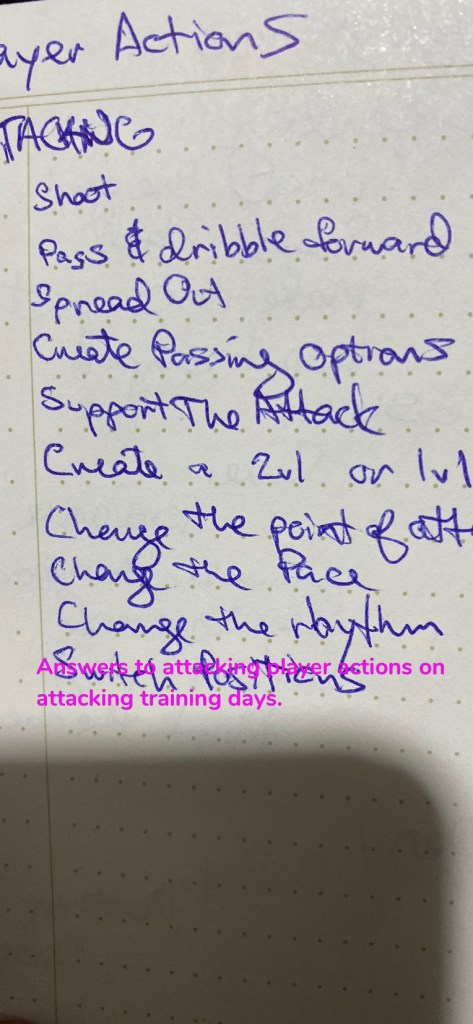 ayer Actions
TACKING
Shoot
Pass & dribble forward
Spread Out
Create Passing options
Support The Attack
Create a 2v1 or 1v1
Change the point of att
Change the Pace
Change the rhythm
Switch Positions
Answers to attacking player actions on
attacking training days.